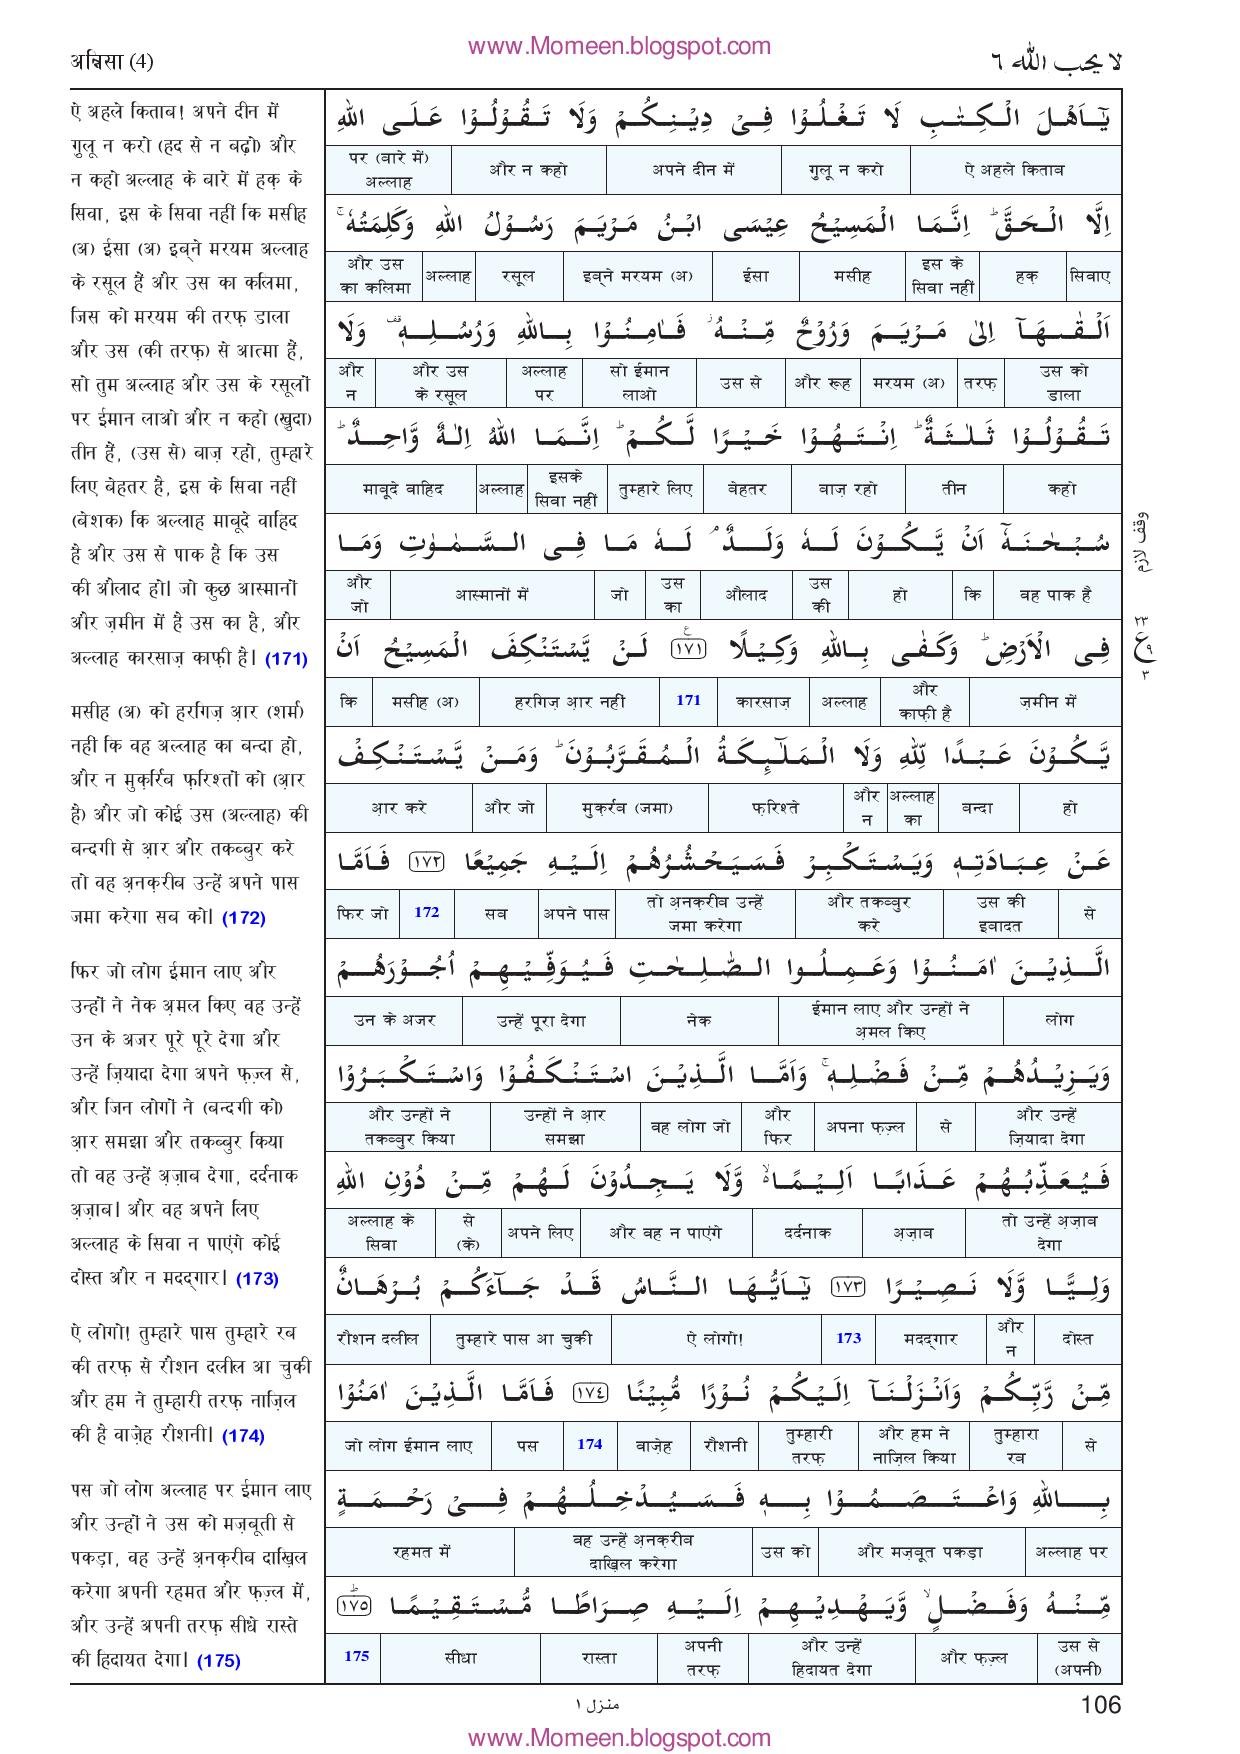 www.Momeen.blogspot.com
अन्निसा (4)
لا يحب الله ٦
ऐ अहले किताब! अपने दीन में
गुलू न करो (हद से न बढ़ो) और
न कहो अल्लाह के बारे में हक़ के
सिवा, इस के सिवा नहीं कि मसीह
(अ) ईसा (अ) इब्ने मरयम अल्लाह
के रसूल हैं और उस का कलिमा,
जिस को मरयम की तरफ़ डाला
और उस (की तरफ़) से आत्मा हैं,
सो तुम अल्लाह और उस के रसूलों
पर ईमान लाओ और न कहो (खुदा)
तीन हैं, (उस से) बाज़ रहो, तुम्हारे
लिए बेहतर है, इस के सिवा नहीं
(बेशक) कि अल्लाह माबूदे वाहिद
है और उस से पाक है कि उस
की औलाद हो। जो कुछ आस्मानों
और ज़मीन में है उस का है, और
अल्लाह कारसाज़ काफ़ी है। (171)
मसीह (अ) को हरगिज़ आ़र (शर्म)
नही कि वह अल्लाह का बन्दा हो,
और न मुक़र्रिब फ़रिश्तों को (आ़र
है) और जो कोई उस (अल्लाह) की
बन्दगी से आ़र और तकब्बुर करे
तो वह अ़नक़रीब उन्हें अपने पास
जमा करेगा सब को। (172)
फिर जो लोग ईमान लाए और
उन्हों ने नेक अ़मल किए वह उन्हें
उन के अजर पूरे पूरे देगा और
उन्हें ज़ियादा देगा अपने फ़ज़्ल से,
और जिन लोगों ने (बन्दगी को)
आ़र समझा और तकब्बुर किया
तो वह उन्हें अ़ज़ाब देगा, दर्दनाक
अ़ज़ाब। और वह अपने लिए
अल्लाह के सिवा न पाएंगे कोई
दोस्त और न मददगार। (173)
ऐ लोगो! तुम्हारे पास तुम्हारे रब
की तरफ़ से रौशन दलील आ चुकी
और हम ने तुम्हारी तरफ़ नाज़िल
की है वाज़ेह रौशनी। (174)
पस जो लोग अल्लाह पर ईमान लाए
और उन्हों ने उस को मज़बूती से
पकड़ा, वह उन्हें अ़नक़रीब दाख़िल
करेगा अपनी रहमत और फ़ज़्ल में,
और उन्हें अपनी तरफ़ सीधे रास्ते
की हिदायत देगा। (175)
يٰۤاَهْلَ الْكِتٰبِ لَا تَغْلُوْا فِىْ دِيْنِكُمْ وَلَا تَقُوْلُوْا عَلَى اللّٰهِ
ऐ अहले किताब गुलू न करो अपने दीन में और न कहो पर (बारे में) अल्लाह
اِلَّا الْحَقَّ ؕ اِنَّمَا الْمَسِيْحُ عِيْسَى ابْنُ مَرْيَمَ رَسُوْلُ اللّٰهِ وَكَلِمَتُهٗ ۚ
सिवाए हक़ इस के सिवा नहीं मसीह ईसा इब्ने मरयम (अ) रसूल अल्लाह और उस का कलिमा
اَلْقٰىهَاۤ اِلٰى مَرْيَمَ وَرُوْحٌ مِّنْهُ ؗ فَاٰمِنُوْا بِاللّٰهِ وَرُسُلِهٖ ۫ وَلَا
उस को डाला तरफ़ मरयम (अ) और रूह उस से सो ईमान लाओ अल्लाह पर और उस के रसूल और न
تَقُوْلُوْا ثَلٰثَةٌ ؕ اِنْتَهُوْا خَيْرًا لَّكُمْ ؕ اِنَّمَا اللّٰهُ اِلٰهٌ وَّاحِدٌ ؕ
कहो तीन बाज़ रहो बेहतर तुम्हारे लिए इसके सिवा नहीं अल्लाह माबूदे वाहिद
سُبْحٰنَهٗۤ اَنْ يَّكُوْنَ لَهٗ وَلَدٌ ۘ لَهٗ مَا فِى السَّمٰوٰتِ وَمَا
वह पाक है कि हो उस की औलाद उस का जो आस्मानों में और जो
وقف لازم
فِى الْاَرْضِ ؕ وَكَفٰى بِاللّٰهِ وَكِيْلًا ١٧١ لَنْ يَّسْتَنْكِفَ الْمَسِيْحُ اَنْ
ज़मीन में और काफ़ी है अल्लाह कारसाज़ 171 हरगिज़ आ़र नहीं मसीह (अ) कि
٢٣
ع ٩
٣
يَّكُوْنَ عَبْدًا لِّلّٰهِ وَلَا الْمَلٰٓئِكَةُ الْمُقَرَّبُوْنَ ؕ وَمَنْ يَّسْتَنْكِفْ
हो बन्दा अल्लाह का और न फ़रिश्ते मुक़र्रब (जमा) और जो आ़र करे
عَنْ عِبَادَتِهٖ وَيَسْتَكْبِرْ فَسَيَحْشُرُهُمْ اِلَيْهِ جَمِيْعًا ١٧٢ فَاَمَّا
से उस की इबादत और तकब्बुर करे तो अ़नक़रीब उन्हें जमा करेगा अपने पास सब 172 फिर जो
الَّذِيْنَ اٰمَنُوْا وَعَمِلُوا الصّٰلِحٰتِ فَيُوَفِّيْهِمْ اُجُوْرَهُمْ
लोग ईमान लाए और उन्हों ने अ़मल किए नेक उन्हें पूरा देगा उन के अजर
وَيَزِيْدُهُمْ مِّنْ فَضْلِهٖ ۚ وَاَمَّا الَّذِيْنَ اسْتَنْكَفُوْا وَاسْتَكْبَرُوْا
और उन्हें ज़ियादा देगा से अपना फ़ज़्ल और फिर वह लोग जो उन्हों ने आ़र समझा और उन्हों ने तकब्बुर किया
فَيُعَذِّبُهُمْ عَذَابًا اَلِيْمًا ۙ وَّلَا يَجِدُوْنَ لَهُمْ مِّنْ دُوْنِ اللّٰهِ
तो उन्हें अ़ज़ाब देगा अ़ज़ाब दर्दनाक और वह न पाएंगे अपने लिए से (के) अल्लाह के सिवा
وَلِيًّا وَّلَا نَصِيْرًا ١٧٣ يٰۤاَيُّهَا النَّاسُ قَدْ جَآءَكُمْ بُرْهَانٌ
दोस्त और न मददगार 173 ऐ लोगो! तुम्हारे पास आ चुकी रौशन दलील
مِّنْ رَّبِّكُمْ وَاَنْزَلْنَاۤ اِلَيْكُمْ نُوْرًا مُّبِيْنًا ١٧٤ فَاَمَّا الَّذِيْنَ اٰمَنُوْا
से तुम्हारा रब और हम ने नाज़िल किया तुम्हारी तरफ़ रौशनी वाज़ेह 174 पस जो लोग ईमान लाए
بِاللّٰهِ وَاعْتَصَمُوْا بِهٖ فَسَيُدْخِلُهُمْ فِىْ رَحْمَةٍ
अल्लाह पर और मज़बूत पकड़ा उस को वह उन्हें अ़नक़रीब दाख़िल करेगा रहमत में
مِّنْهُ وَفَضْلٍ ۙ وَّيَهْدِيْهِمْ اِلَيْهِ صِرَاطًا مُّسْتَقِيْمًا ١٧٥
उस से (अपनी) और फ़ज़्ल और उन्हें हिदायत देगा अपनी तरफ़ रास्ता सीधा 175
منزل ١
106
www.Momeen.blogspot.com